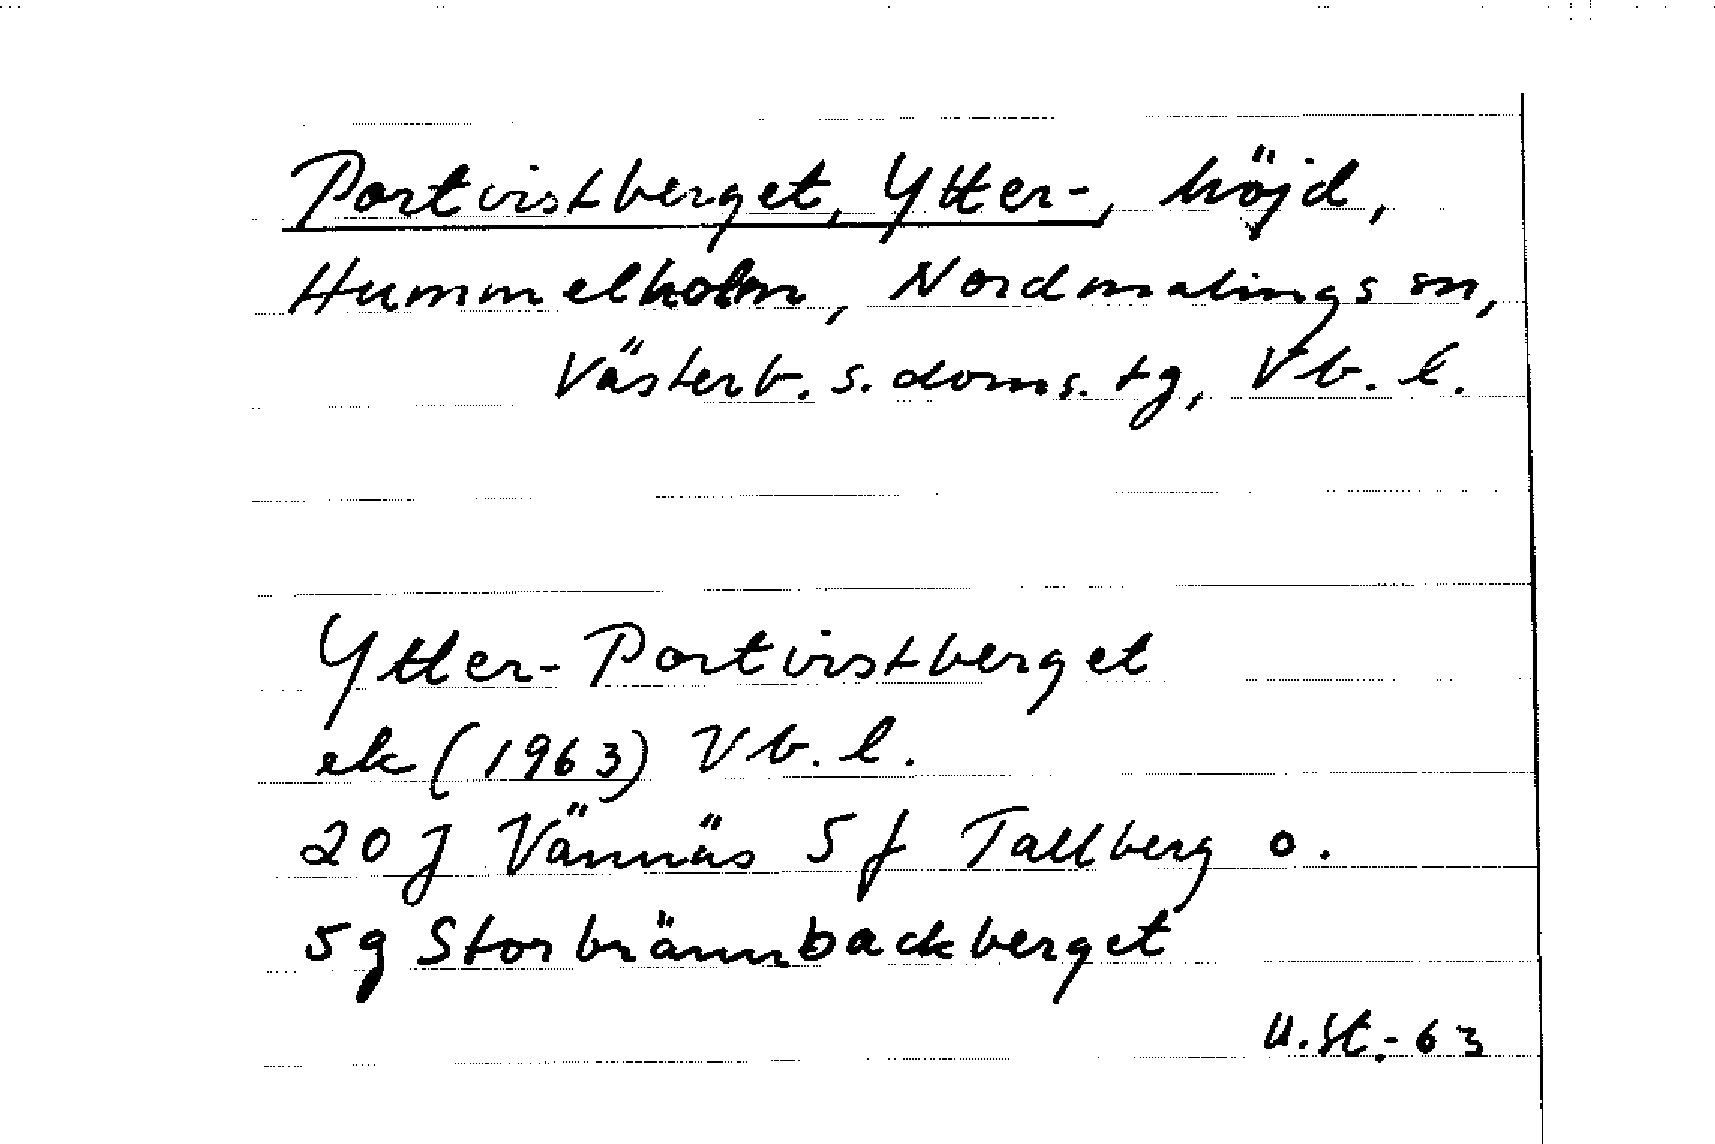 Portvistberget, Ytter-, höjd,
Hummelholm, Nordmalings sn,
Västerb. s. doms. tg, Vb. l.
Ytter-Portvistberget
ek (1963) Vb. l.
20 J Vännäs 5 f Tallberg o.
5 g Storbrännbackberget
U.St.-63